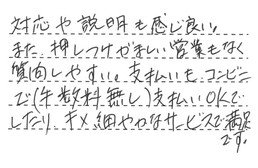 対応や説明も感じ良い。
また押しつけがましい営業もなく
質問しやすい。支払いも、コンビニ
で(手数料無し)支払いOKで
したり、キメ細やかなサービスで満足
です。